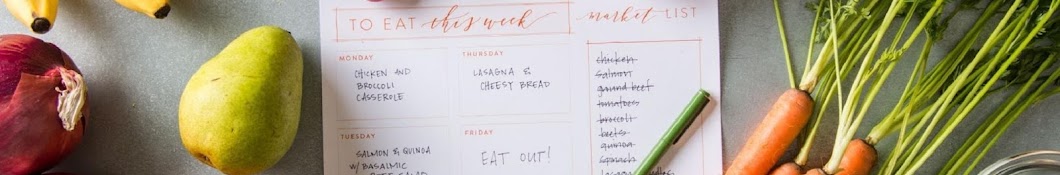 TO EAT this week
market LIST
MONDAY
CHICKEN AND
BROCCOLI
CASSEROLE
THURSDAY
LASAGNA &
CHEESY BREAD
TUESDAY
SALMON & QUINOA
W/ BASALMIC
FRIDAY
EAT OUT!
chicken
salmon
ground beef
tomatoes
broccoli
beets
quinoa
spinach